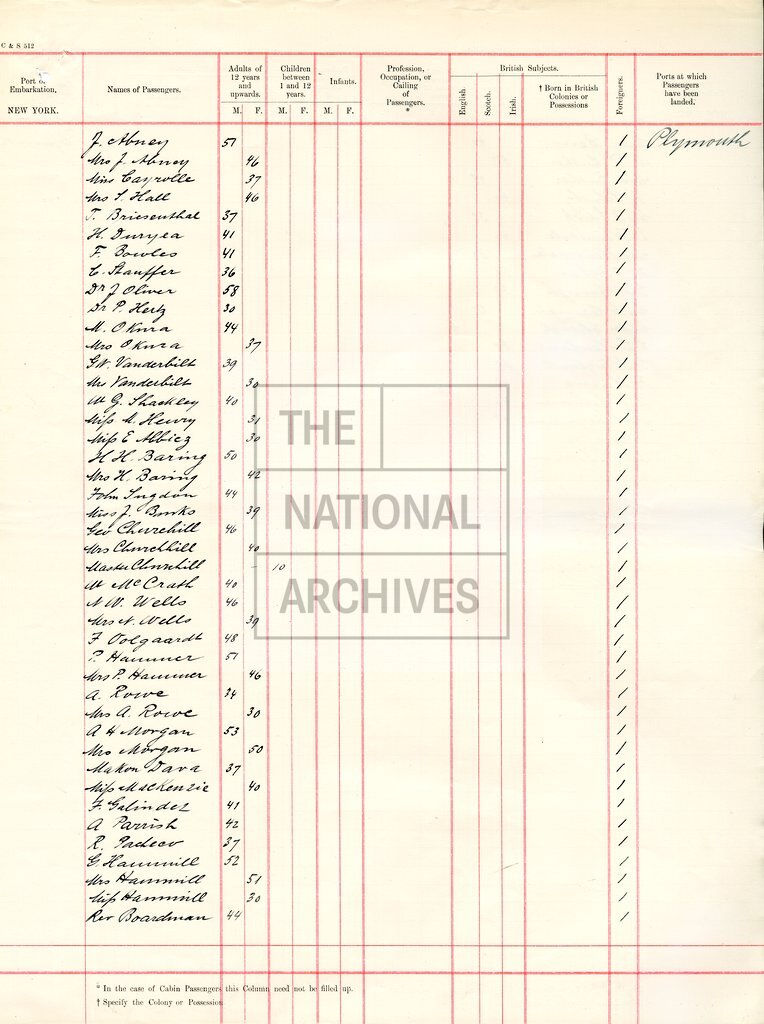 C & S 512
Port of Embarkation. NEW YORK.
Names of Passengers.
Adults of 12 years and upwards. M. F.
Children between 1 and 12 years. M. F.
Infants. M. F.
Profession, Occupation, or Calling of Passengers. *
British Subjects.
English Scotch. Irish. † Born in British Colonies or Possessions
Foreigners.
Ports at which Passengers have been landed.
J. Abney 51 1 Plymouth
Mrs J. Abney 46 1
Miss Cayrolle 37 1
Mrs S. Hall 46 1
T. Briesenthal 37 1
H. Duryea 41 1
F. Bowles 41 1
C. Stauffer 36 1
Dr J Oliver 58 1
Dr P. Hertz 30 1
M. Okura 44 1
Mrs Okura 37 1
GW. Vanderbilt 39 1
Mrs Vanderbilt 30 1
W G. Shackley 40 1
Miss M. Henry 31 1
Miss E Albiez 30 1
H H. Baring 50 1
Mrs H. Baring 42 1
John Sugdon 44 1
Miss J. Binks 39 1
Geo Churchill 46 1
Mrs Churchhill 40 1
Master Churchill - 10 1
W McCrath 40 1
N W. Wells 46 1
Mrs N. Wells 39 1
F Oolgaardt 48 1
P. Hammer 51 1
Mrs P. Hammer 46 1
A. Rowe 34 1
Mrs A. Rowe 30 1
A H Morgan 53 1
Mrs Morgan 50 1
Makon Dava 37 1
Miss MacKenzie 40 1
F. Galindez 41 1
A Parrish 42 1
R. Pacheco 37 1
G Hammill 52 1
Mrs Hammill 51 1
Miss Hammill 30 1
Rev Boardman 44 1
* In the case of Cabin Passengers this Column need not be filled up.
† Specify the Colony or Possession
THE
NATIONAL
ARCHIVES